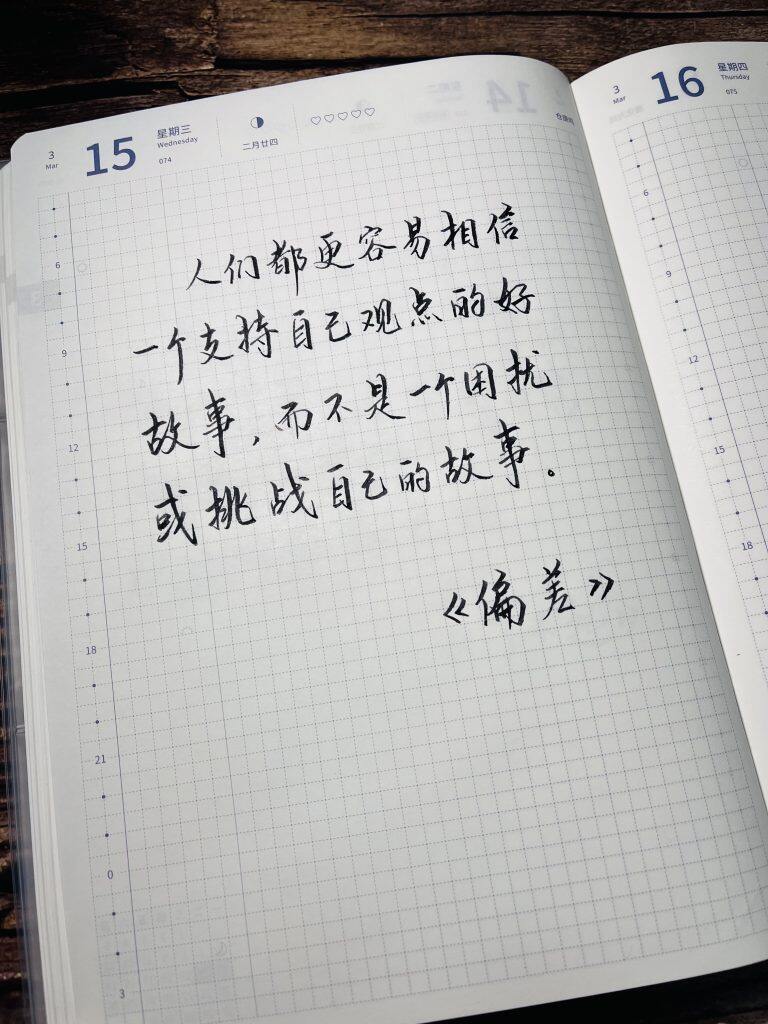 3
Mar
15
星期三
Wednesday
074
二月廿四
3
Mar
16
星期四
Thursday
075
人们都更容易相信
一个支持自己观点的好
故事，而不是一个困扰
或挑战自己的故事。
《偏差》
6
9
12
15
18
21
0
3
6
9
12
15
18